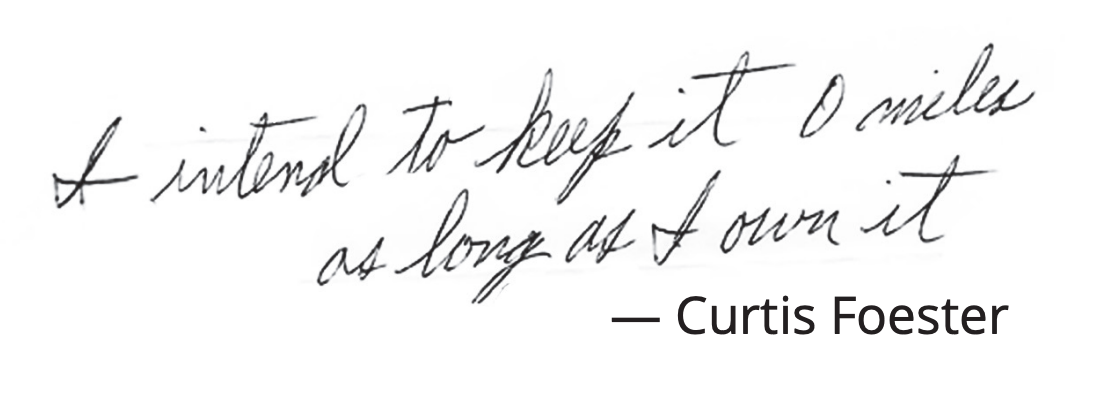 I intend to keep it 0 miles
as long as I own it
— Curtis Foester